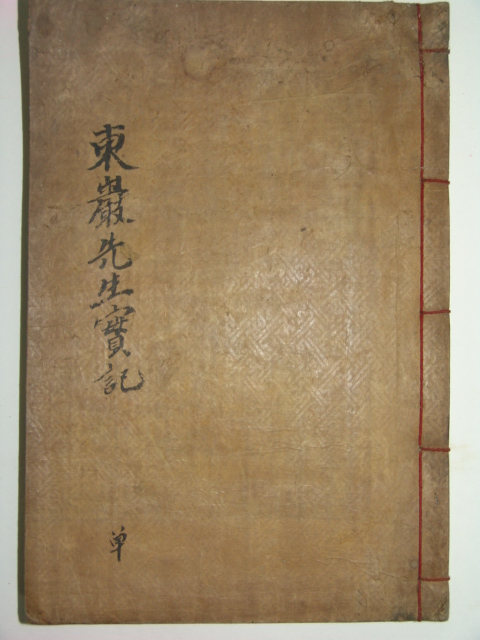 東巖先生實記
单